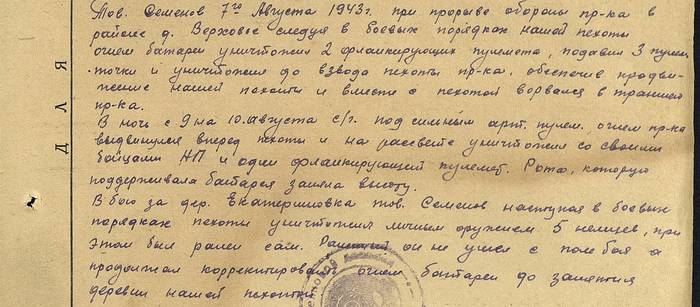 Тов. Семенов 7го Августа 1943г. при прорыве обороны пр-ка в
районе д. Верховье следуя в боевых порядках нашей пехоты
огнем батареи уничтожил 2 фланкирующих пулемета, подавил 3 пулем.
точки и уничтожил до взвода пехоты пр-ка, обеспечив продви-
жение нашей пехоты и вместе с пехотой ворвался в траншеи
пр-ка.
В ночь с 9 на 10 августа с/г. под сильным арт. пулем. огнем пр-ка
выдвинулся вперед пехоты и на рассвете уничтожил со своими
бойцами НП и один фланкирующий пулемет. Рота, которую
поддерживала батарея заняла высоту.
В бою за дер. Екатериновка тов. Семенов наступая в боевых
порядках пехоты уничтожил личным оружием 5 немцев, при
этом был ранен сам. Раненый он не ушел с поля боя а
продолжал корректировать огнем батареи до занятия
деревни нашей пехотой
ДЛЯ